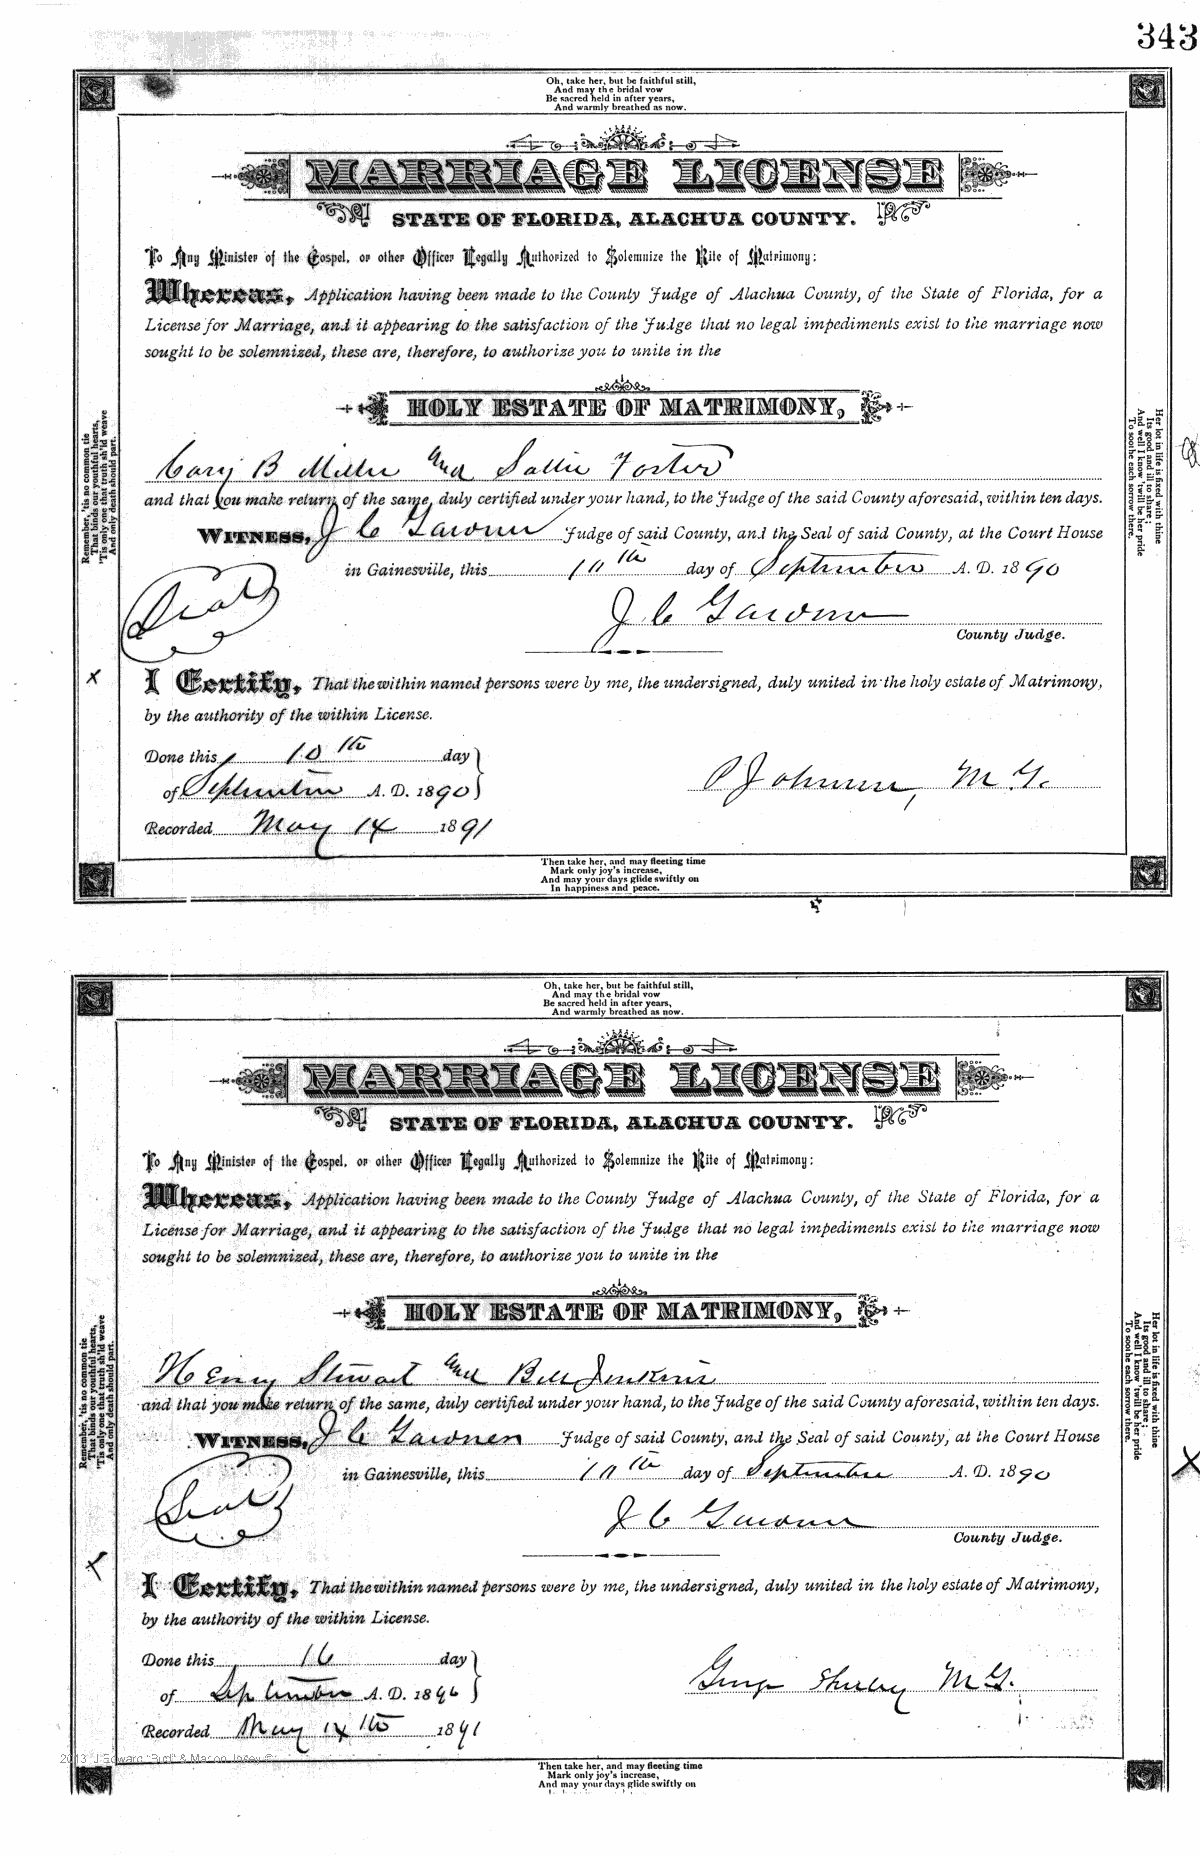 343
Oh, take her, but be faithful still,
And may the bridal vow
Be sacred held in after years,
And warmly breathed as now.
MARRIAGE LICENSE
STATE OF FLORIDA, ALACHUA COUNTY.
To Any Minister of the Gospel, or other Officer Legally Authorized to Solemnize the Rite of Matrimony:
Whereas, Application having been made to the County Judge of Alachua County, of the State of Florida, for a
License for Marriage, and it appearing to the satisfaction of the Judge that no legal impediments exist to the marriage now
sought to be solemnized, these are, therefore, to authorize you to unite in the
HOLY ESTATE OF MATRIMONY,
Cary B Miller and Sallie Foster
and that you make return of the same, duly certified under your hand, to the Judge of the said County aforesaid, within ten days.
WITNESS, J C Gardner Judge of said County, and the Seal of said County, at the Court House
in Gainesville, this 10th day of September A. D. 1890
Seal
J C Gardner
County Judge.
I Certify, That the within named persons were by me, the undersigned, duly united in the holy estate of Matrimony,
by the authority of the within License.
Done this 10th day
of September A. D. 1890
P Johnson, M G.
Recorded May 14 1891
Then take her, and may fleeting time
Mark only joy's increase,
And may your days glide swiftly on
In happiness and peace.
Remember, 'tis no common tie
That binds our youthful hearts,
'Tis only one that truth sh'ld weave
And only death should part.
Her lot in life is fixed with thine
Its good and ill to share;
And well I know 'twill be her pride
To soothe each sorrow there.
Oh, take her, but be faithful still,
And may the bridal vow
Be sacred held in after years,
And warmly breathed as now.
MARRIAGE LICENSE
STATE OF FLORIDA, ALACHUA COUNTY.
To Any Minister of the Gospel, or other Officer Legally Authorized to Solemnize the Rite of Matrimony:
Whereas, Application having been made to the County Judge of Alachua County, of the State of Florida, for a
License for Marriage, and it appearing to the satisfaction of the Judge that no legal impediments exist to the marriage now
sought to be solemnized, these are, therefore, to authorize you to unite in the
HOLY ESTATE OF MATRIMONY,
Henry Stewart and Bell Jenkins
and that you make return of the same, duly certified under your hand, to the Judge of the said County aforesaid, within ten days.
WITNESS, J C Gardner Judge of said County, and the Seal of said County, at the Court House
in Gainesville, this 10th day of September A. D. 1890
Seal
J C Gardner
County Judge.
I Certify, That the within named persons were by me, the undersigned, duly united in the holy estate of Matrimony,
by the authority of the within License.
Done this 16 day
of September A. D. 1890
George M G.
Recorded May 14th 1891
Then take her, and may fleeting time
Mark only joy's increase,
And may your days glide swiftly on
Remember, 'tis no common tie
That binds our youthful hearts,
'Tis only one that truth sh'ld weave
And only death should part.
Her lot in life is fixed with thine
Its good and ill to share;
And well I know 'twill be her pride
To soothe each sorrow there.